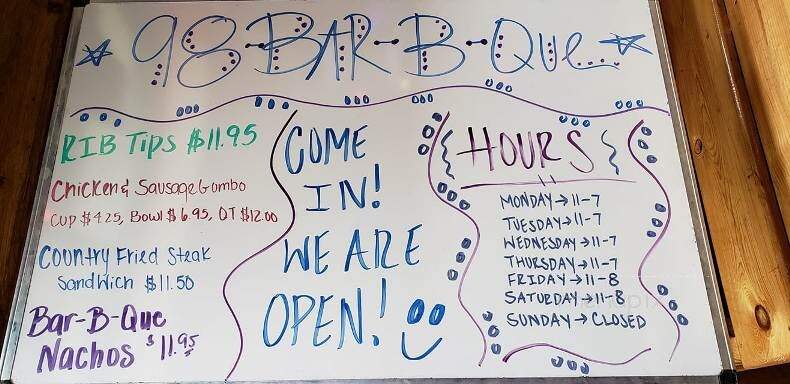 98-BAR-B-Que
RIB Tips $11.95
Chicken & Sausage Gombo
Cup $4.25, Bowl $6.95, QT $12.00
Country Fried Steak
Sandwich $11.50
Bar-B-Que
Nachos $11.95
COME
IN!
WE ARE
OPEN!
HOURS
MONDAY→11-7
TUESDAY→11-7
WEDNESDAY→11-7
THURSDAY→11-7
FRIDAY→11-8
SATURDAY→11-8
SUNDAY→CLOSED